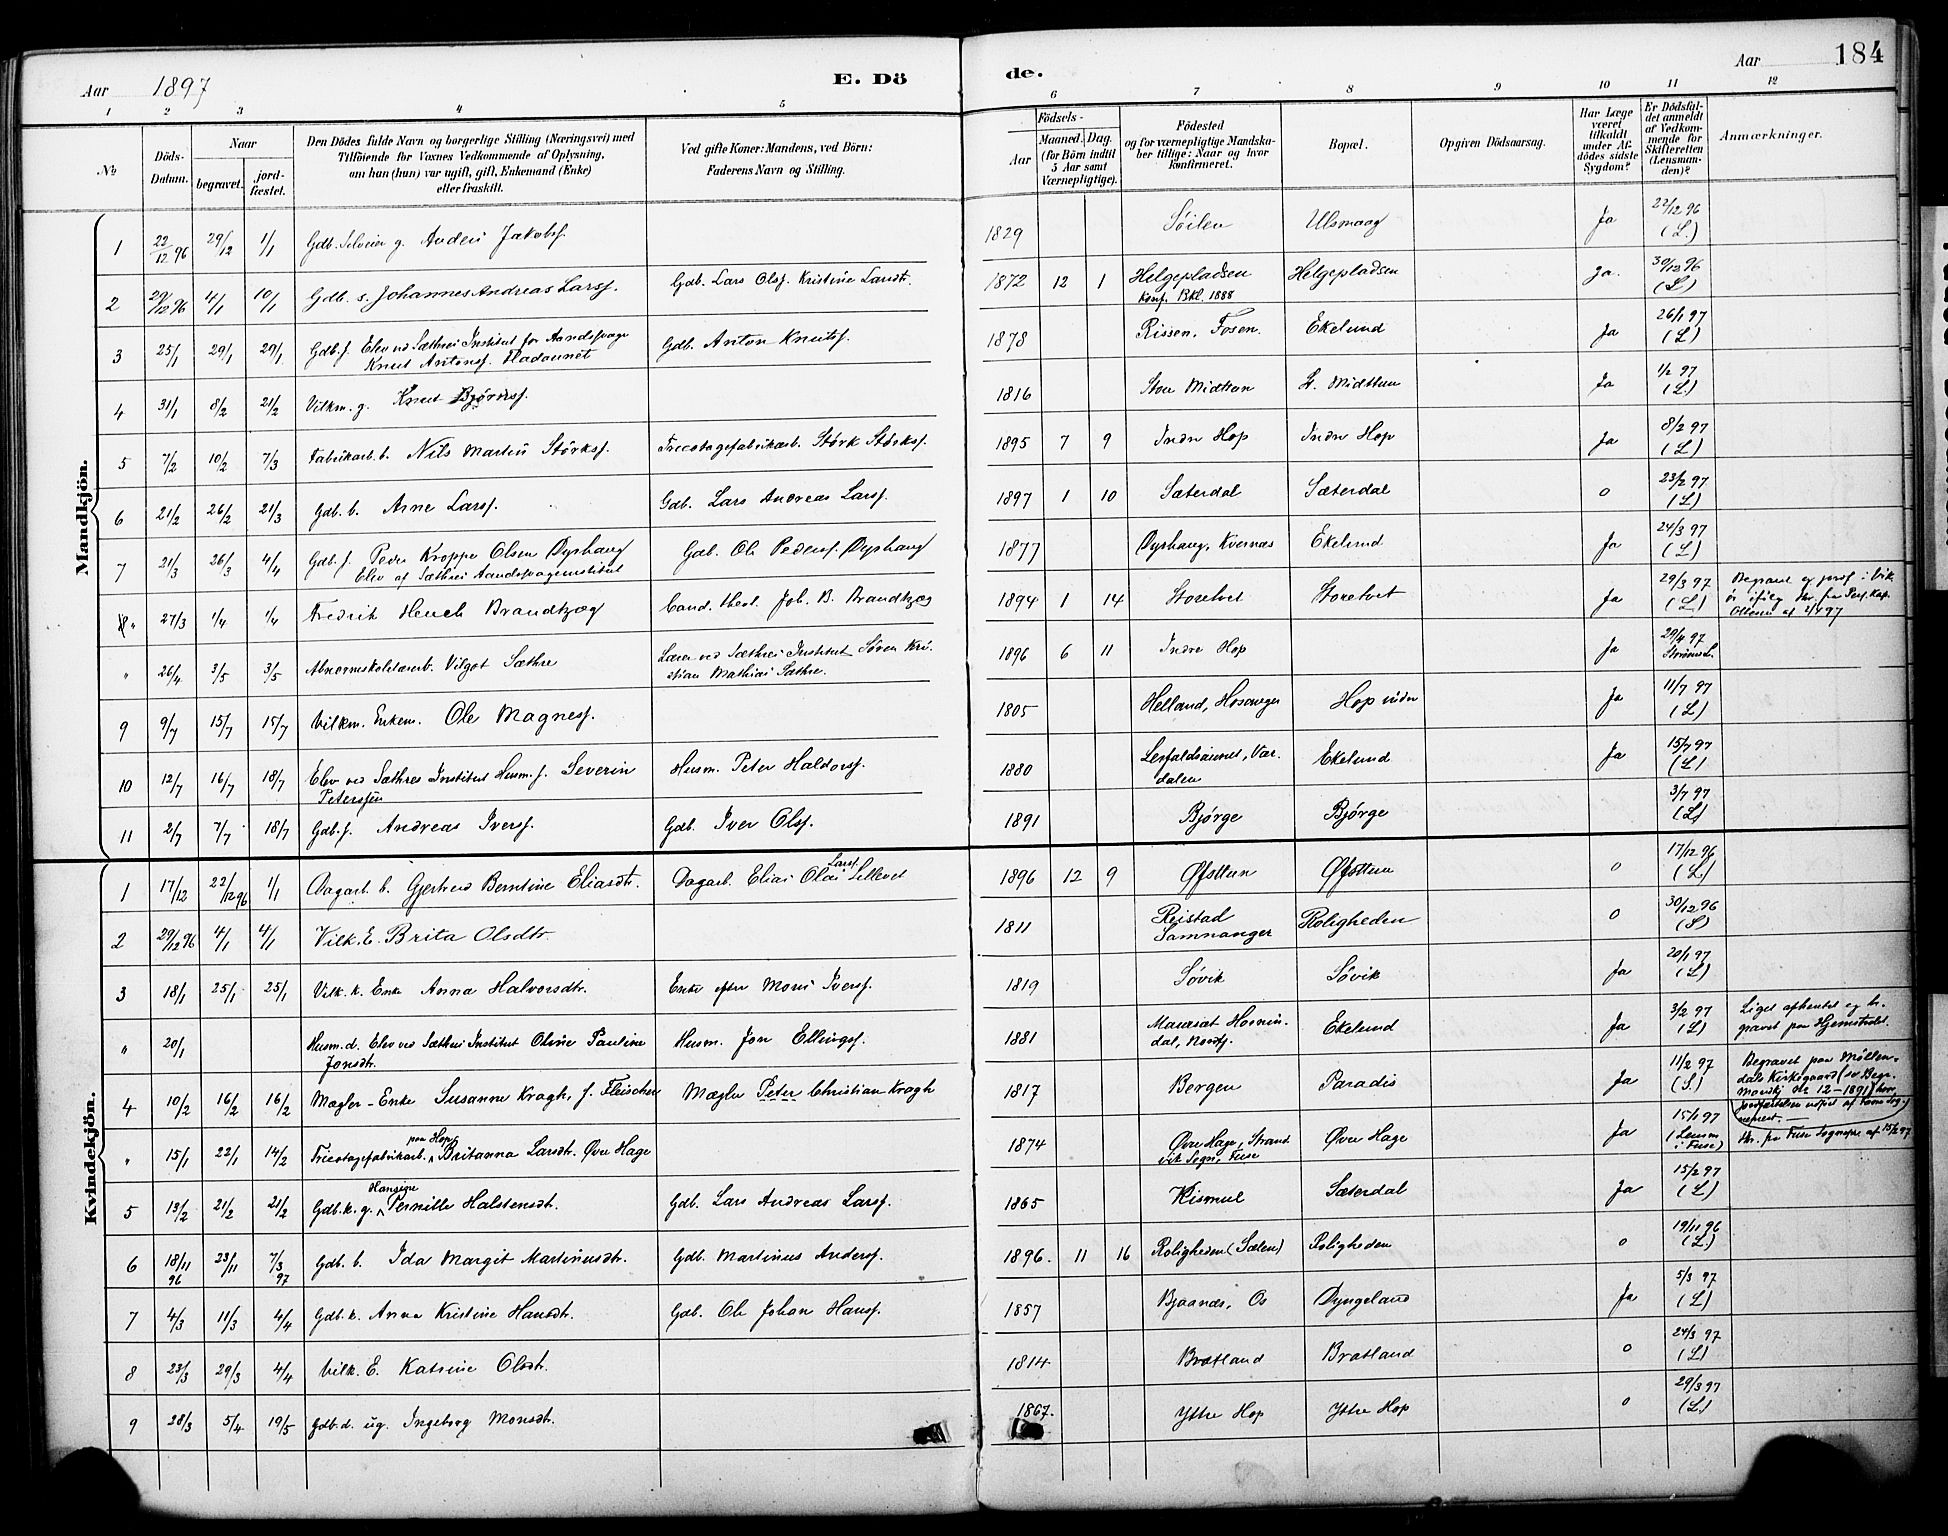 Aar 1897
E. Dö
de.
Aar
184
1 2 3 4 5 6 7 8 9 10 11 12
No
Döds-Datum.
Naar
begravet.
jord-fæstet.
Den Dödes fulde Navn og borgerlige Stilling (Næringsvei) med
Tilföiende for Voxnes Vedkommende af Oplysning,
om han (hun) var ugift, gift, Enkemand (Enke)
eller fraskilt.
Ved gifte Koner: Mandens, ved Börn:
Faderens Navn og Stilling.
Födsels-
Aar
Maaned.
Dag.
(for Börn indtil 5 Aar samt Værnepligtige).
Födested
og for værnepligtige Mandskaber tillige: Naar og hvor konfirmeret.
Bopæl.
Opgiven Dödsaarsag.
Har Læge været tilkaldt under Afdödes sidste Sygdom?
Er Dödsfaldet anmeldt af Vedkommende for Skifteretten (Lensmanden)?
Anmærkninger.
Mandkjön.
1 22/12 96 29/12 1/1 Gdb. g. Anders Jakobsf. 1829 Söilen Ulsmaag Ja 22/12 96 (L.)
2 29/12 96 4/1 10/1 Gdb. s. Johannes Andreas Larsf. Gdb. Lars Olsf. Kristine Larsdtr. 1872 12 1 Helgepladsen Helgepladsen Ja. 30/12 96 (L)
konf. Bkl. 1888
3 25/1 29/1 29/1 Gdb. f. Elev ved Sæthres Institut for Aandssvage Gdb. Anton Knutsf. 1878 Rissen, Fosen. Ekelund Ja 26/1 97 (L)
Knut Antonsf.
4 31/1 8/2 21/2 Vilkm. g. Knut Bjørnsf. 1816 Store Midttun St. Midttun Ja 1/2 97 (L)
5 7/2 10/2 7/3 Fabrikarb. b. Nils Martin Störksf. Tricotagefabrikarb. Störk Störksf. 1895 7 9 Indre Hop Indre Hop Ja 8/2 97 (L)
6 21/2 26/2 21/3 Gdb. b. Arne Larsf. Gdb. Lars Andreas Larsf. 1897 1 10 Sæterdal Sæterdal 0 23/2 97 (L)
7 21/3 26/3 4/4 Gdb. f. Peder Kroppe Olsen Dyrhaug Gdb. Ole Pedersf. Dyrhaug 1877 Dyrhaug, Kvernæs Ekelund Ja 24/3 97 (L)
Elev af Sæthres Aandssvageinstitut
8 " 27/3 1/4 1/4 Fredrik Hench Brandtzæg Cand. theol. Joh. B. Brandtzæg 1894 1 14 Storetvet Storetvet Ja 29/3 97 (L) Begravet og jordf. i Vik
Ottesen af 2/4 97
" 26/4 3/5 3/5 Abnormskolelærerb. Vilgot Sæthre Lærer ved Sæthres Institut Sören Kristian Mathias Sæthre. 1896 6 11 Indre Hop Ja 29/4 97
9 9/7 15/7 15/7 Vilkm. Enkem. Ole Magnesf. 1805 Helland, Hosanger Hop indre Ja 11/7 97 (L)
10 12/7 16/7 18/7 Elev ved Sæthres Institut Husm. f. Severin Peterssen Husm. Peter Haldorsf. 1880 Ekelund Ja 15/7 97 (L)
11 2/7 7/7 18/7 Gdb. f. Andreas Iversf. Gdb. Iver Olsf. 1891 Bjørge Bjørge 3/7 97 (L)
Kvindekjön.
1 17/12 22/12 96 1/1 Dagarb. b. Gjertrud Berntine Eliasdtr. Dagarb. Elias Olai Larsf. Sellevet 1896 12 9 Øfsttun Øfsttun 0 17/12 96 (L.)
2 29/12 96 4/1 4/1 Vilk. E. Brita Olsdtr. 1811 Reistad Samnanger Roligheden 0 30/12 96 (S)
3 18/1 25/1 25/1 Vilk. k. Enke Anna Halvorsdtr. Enke efter Mons Iversf. 1819 Søvik Søvik Ja 20/1 97 (L)
" 20/1 Husm. d. Elev ved Sæthres Institut Oline Pauline Jonsdtr. Husm. Jon Ellingsf. 1881 Maurset Hornindal, Nordfj. Ekelund Ja 3/2 97 (L) Liget afhentet og begravet paa Hjemstedet.
4 10/2 16/2 16/2 Mægler-Enke Susanne Kragh, f. Fleischer Mægler Peter Christian Kragh 1817 Bergen Paradis Ja 11/2 97 (S.) Begravet paa Möllendals Kirkegaard
" 15/1 22/1 14/2 Tricotagefabrikarb. paa Hop Britanna Larsdtr. Øvre Hage 1874 Øvre Hage, Strandvik Sogn, Fuse Øvre Hage Ja 15/1 97 (Lensm. i Fuse) Skr. fra Fuse Sognepr. af 15/2 97
5 13/2 21/2 21/2 Gdb. k. g. Hansine Pernille Halstensdtr. Gdb. Lars Andreas Larsf. 1865 Kismul Sæterdal Ja 15/2 97 (L)
6 18/11 96 23/11 7/3 97 Gdb. b. Ida Margit Martinusdtr. Gdb. Martinus Andersf. 1896. 11 16 Roligheden (Sælen) Roligheden 0 19/11 96 (L.)
7 4/3 11/3 4/4 Gdb. k. Anna Kristine Hansdtr. Gdb. Ole Johan Hansf. 1857 Bjaanæs, Os Dyngeland Ja 5/3 97 (L)
8 23/3 29/3 4/4 Vilk. E. Katrine Olsdtr. 1814 Bratland Bratland 0 24/3 97 (L)
9 28/3 5/4 19/5 Gdb. d. ug. Ingeborg Monsdtr. 1867. Ytre Hop Ytre Hop 0 29/3 97 (L.)